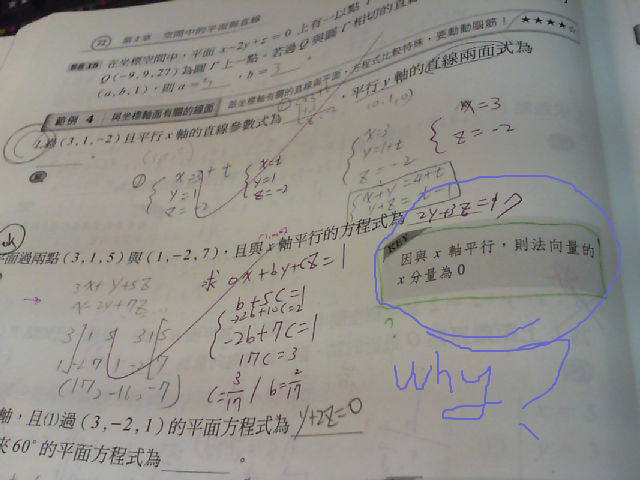 72 第2章 空間中的平面與直線
在坐標空間中,平面 x-2y+z=0 上有一以點
Q(-9,9,27) 為圓Γ上一點,若過Q與圓Γ相切的直線
(a,b,1),則 a= 5 ,b= 3 。
範例 4 與坐標軸面有關的線面 ★★★★☆
(3,1,-2) 且平行 x 軸的直線參數式為 ,平行 y 軸的直線兩面式為
(0,1,0)
① { x=3+t
y=1
z=-2
{ x=t
y=1
z=-2
x=3
y=1+t
z=-2
{ x=3
z=-2
{ x+y=4+t
ok
平面過兩點 (3,1,5) 與 (1,-2,7),且與 x 軸平行的方程式為 2y+3z=17
求 ax+by+cz=1
3x+y+5z
x-2y+7z
{ b+5c=1
-2b+7c=1
17c=3
c=3/17 / b=2/17
3 1 5 3 1 5
(17,-16,-7)
KEY
因與 x 軸平行,則法向量的
x 分量為 0
?
why?
軸,且(1)過 (3,-2,1) 的平面方程式為 y+2z=0
夾60°的平面方程式為 。